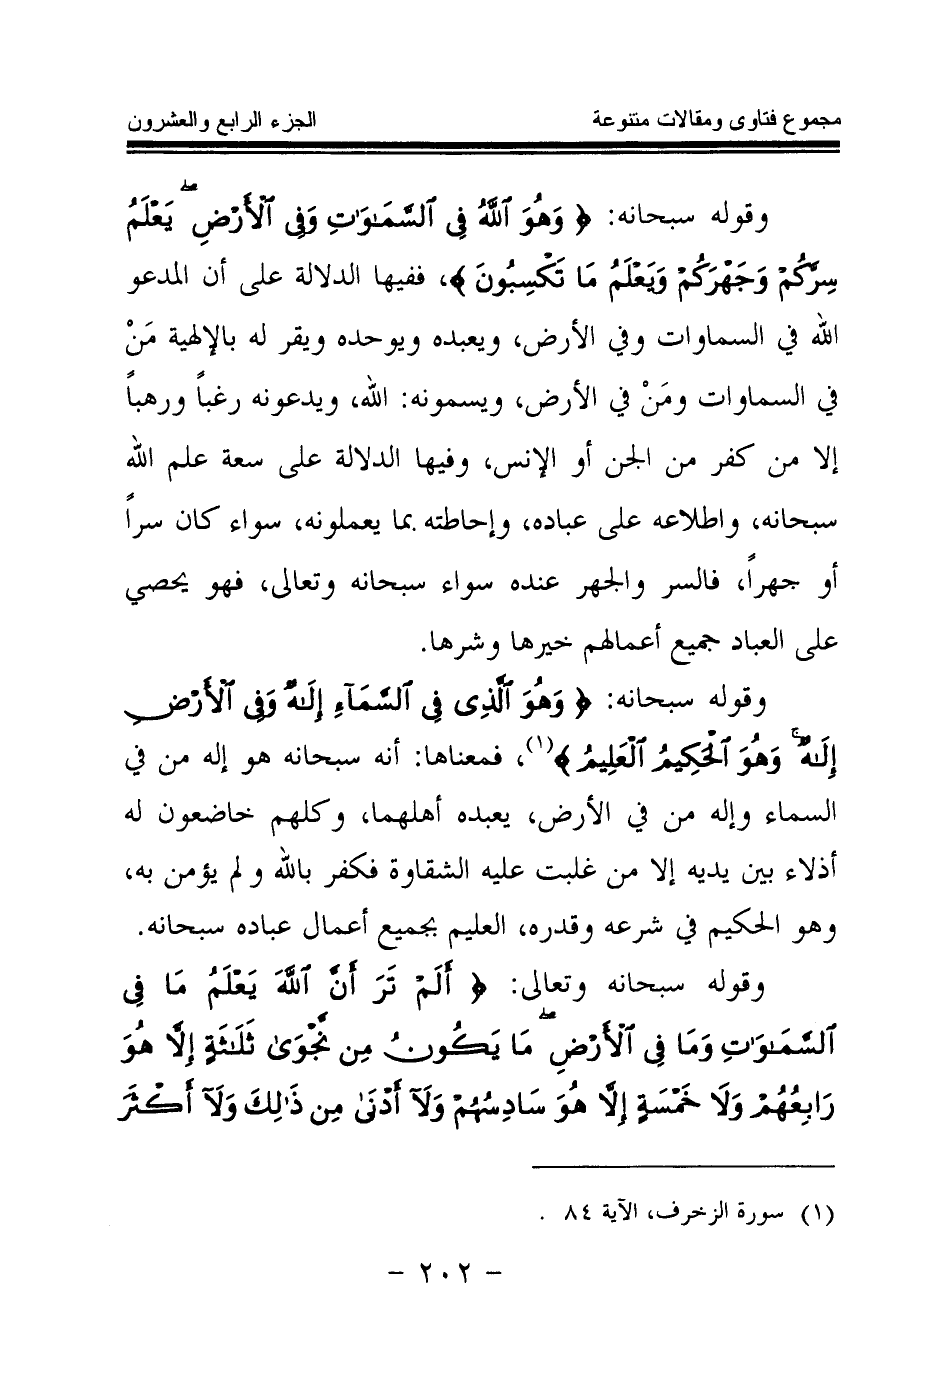 مجموع فتاوى ومقالات متنوعة الجزء الرابع والعشرون
وقوله سبحانه: ﴿ وَهُوَ ٱللَّهُ فِى ٱلسَّمَـٰوَٰتِ وَفِى ٱلْأَرْضِ ۖ يَعْلَمُ
سِرَّكُمْ وَجَهْرَكُمْ وَيَعْلَمُ مَا تَكْسِبُونَ ﴾، ففيها الدلالة على أن المدعو
الله في السماوات وفي الأرض، ويعبده ويوحده ويقر له بالإلهية مَنْ
في السماوات ومَنْ في الأرض، ويسمونه: الله، ويدعونه رغباً ورهباً
إلا من كفر من الجن أو الإنس، وفيها الدلالة على سعة علم الله
سبحانه، واطلاعه على عباده، وإحاطته بما يعملونه، سواء كان سراً
أو جهراً، فالسر والجهر عنده سواء سبحانه وتعالى، فهو يحصي
على العباد جميع أعمالهم خيرها وشرها.
وقوله سبحانه: ﴿ وَهُوَ ٱلَّذِى فِى ٱلسَّمَآءِ إِلَـٰهٌ وَفِى ٱلْأَرْضِ
إِلَـٰهٌ ۚ وَهُوَ ٱلْحَكِيمُ ٱلْعَلِيمُ ﴾(١)، فمعناها: أنه سبحانه هو إله من في
السماء وإله من في الأرض، يعبده أهلهما، وكلهم خاضعون له
أذلاء بين يديه إلا من غلبت عليه الشقاوة فكفر بالله ولم يؤمن به،
وهو الحكيم في شرعه وقدره، العليم بجميع أعمال عباده سبحانه.
وقوله سبحانه وتعالى: ﴿ أَلَمْ تَرَ أَنَّ ٱللَّهَ يَعْلَمُ مَا فِى
ٱلسَّمَـٰوَٰتِ وَمَا فِى ٱلْأَرْضِ ۖ مَا يَكُونُ مِن نَّجْوَىٰ ثَلَـٰثَةٍ إِلَّا هُوَ
رَابِعُهُمْ وَلَا خَمْسَةٍ إِلَّا هُوَ سَادِسُهُمْ وَلَآ أَدْنَىٰ مِن ذَٰلِكَ وَلَآ أَكْثَرَ
(١) سورة الزخرف، الآية ٨٤ .
- ٢٠٢ -